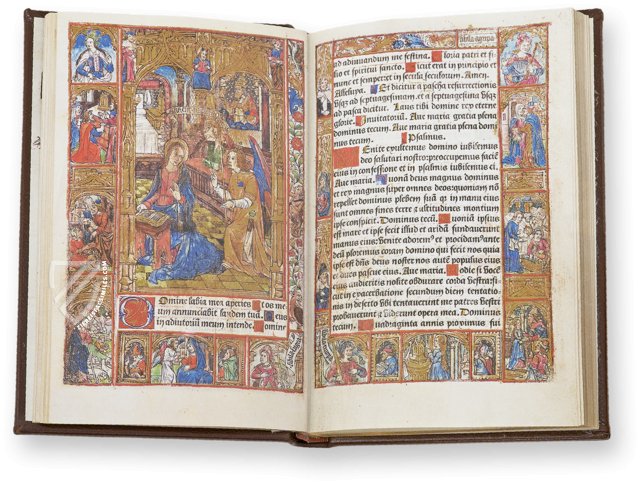 Domine labia mea aperies Et os me
um annunciabit laudem tuā. Deus
in adiutoriū meum intende. Domine
ad adiuuandum me festina. Gloria patri et fi
lio et spiritui sancto. Sicut erat in principio et
nunc et semper et in secula seculorum. Amen.
Alleluya. Et dicitur a pascha resurrectionis
vsq; ad septuagesimā. et a septuagesima vsq;
ad pascha dicitur. Laus tibi domine rex eterne
glorie. Inuitatoriū. Aue maria gratia plena
dominus tecum. Aue maria gratia plena
dominus tecum. Psalmus.
Enite exultemus domino iubilemus
deo salutari nostro: preoccupemus faciē
eius in confessione et in psalmis iubilemus ei.
Aue maria. Quoniā deus magnus dominus
et rex magnus super omnes deos: quoniam nō
repellet dominus plebem suā quia in manu eius
sunt omnes fines terre et altitudines montium
ipse conspicit. Dominus tecū. Quoniā ipsius
est mare et ipse fecit illud et aridā fundauerunt
manus eius: venite adorem⁹ et procidam⁹ ante
deū ploremus coram domino qui fecit nos
quia ipse est dominus deus noster nos autē populus eius
et oues pascue eius. Aue maria. Hodie si vocē
eius audieritis nolite obdurare corda vestra: si
cut in exacerbatione secundum diem tentatio
nis in deserto vbi tentauerunt me patres vestri
probauerunt et viderunt opera mea. Dominus
tecum. Quadraginta annis proximus fui